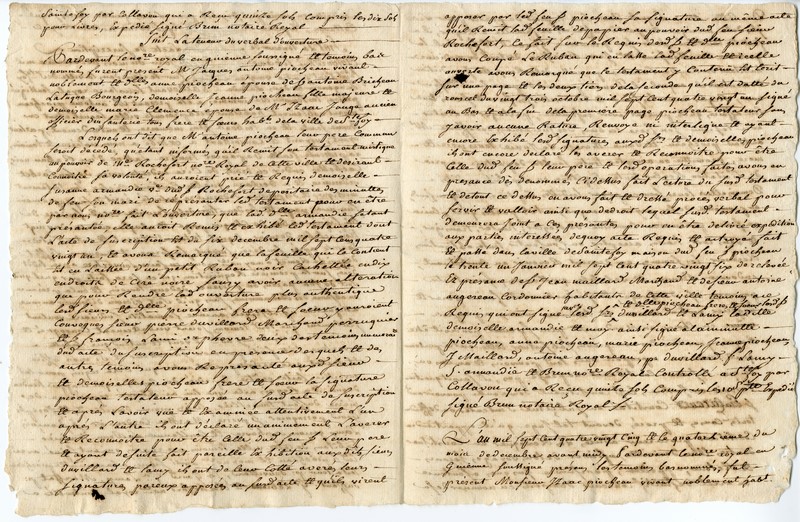 Sainte foy par Collavou qui a Reçu quinze sols compris les dix sols
pour livres, Expedié signé Brun notaire Royal
Suit La teneur du verbal d'ouverture
Pardevant le notre royal en Guienne soussigné et temoins bas
nommés furent presents Mr Jacques antoine piocheau vivant
noblement anne piocheau epouse de sr antoine
et demoiselle jeanne piocheau fille majeure et
demoiselle marie de Mr Isaac ancien
officier tous frere et soeurs habts de la ville de Ste foy
Lesquels ont dit que Mr antoine piocheau leur pere commun
seroit decedé, quetant informés quil Remit son testament mistique
au pouvoir de Me Rochefort nore Royal de cette ville et desirant
connoitre sa volonté ils auroient prié et Requis demoiselle
susanne armandie ve dud sr Rochefort depositaire des minutes
de feu son mari de representer led testament pour en être
par nous nore fait Louverture, que lad dlle armandie setant
presentée, elle auroit Remis et exhibé led testament dont
Lacte de suscription est du six decembre mil sept cens quatre
vingt un, et avons Remarqué que la feuille qui le contient
est enlassée d'un petit Ruban noir cachetté en dix
endroits de cire noire sans y avoir aucune alteration
que pour Rendre lad ouverture plus authentique
led sieurs et dlles piocheau frere et soeurs y auroient
Convoqués sieur pierre duvillard Marchand perruquier
et sr françois Lami orphevre deux des temoins numeraires
dud acte de suscription en presence desquels et des
autres temoins avons Representé auxd sieur
et demoiselles piocheau frere et soeurs la signature
piocheau testateur apposée au susd acte de suscription
et après Lavoir vue et examinée attentivement Lun
après Lautre ils ont declaré unanimement Laverer
et Reconnoitre pour être Celle dud feu sr Leur pere
et ayant de suite fait pareille Exhibition auxdits sieurs
duvillard et Lamy ils ont de leur Cotté averés leurs
signatures par eux apposées au susd acte et quils virent
apposer par led feu sr piocheau sa signature au même acte
quil Remit lad feuille de papier au pouvoir dud feu sieur
Rochefort, Ce fait sur le Requis desd sr et dlles piocheau
avons Coupé Le Ruban qui enlasse lad feuille et icelle
ouverte avons Remarqué que le testament y Contenu est ecrit
sur une page et les deux tiers de la seconde quil est datté du
vingt trois octobre mil sept cens quatre vingt un signé
au Bas et a la fin de la premiere page piocheau testateur sans
y avoir aucune Rature, Renvoy ni interligne et ayant
encore Exhibé led signatures auxd sr et demoiselles piocheau
ils ont encore declaré les averer et Reconnoitre pour être
Celle dud feu sr leur pere et led operations faites, avons en
presence des denommés Ci dessus fait Lecture du susd testament
et de tout ce dessus en avons fait et dressé procès verbal pour
servir et valloir ainsi que de droit lequel susd testament
demeurera joint a Ces presentes pour en être delivré expedition
aux parties interessées, dequoy acte Requis et octroyé fait
et passé dans la ville de Sainte foy maison dud feu sr piocheau
le trente un janvier mil sept cens quatre vingt six de relevée
et presens de sr Jean maillard Marchand et de sieur antoine
augereau Cordonnier habitants de Cette ville temoins a ce
Requis qui ont signé avec led sr et dlles piocheau frere et soeurs lesd sr
par nous led sr duvillard et Lamy lad dlle
demoiselle armandie et nous ainsi signé a la minutte
piocheau, anne piocheau, marie piocheau Jeanne piocheau
J. Maillard, antoine augereau, pr duvillard fs Lamy
S. armandie et Brun nore Royal Controllé a Ste foy par
Collavou qui a Reçu quinze sols Compris les Expedié
signé Brun notaire Royal
L'an mil sept cens quatre vingt Cinq et le quatorzieme du
mois de decembre avant midy Pardevant le nore royal en
Guienne soussigné presens les temoins bas nommés, fut
present Monsieur Isaac piocheau vivant noblement habt